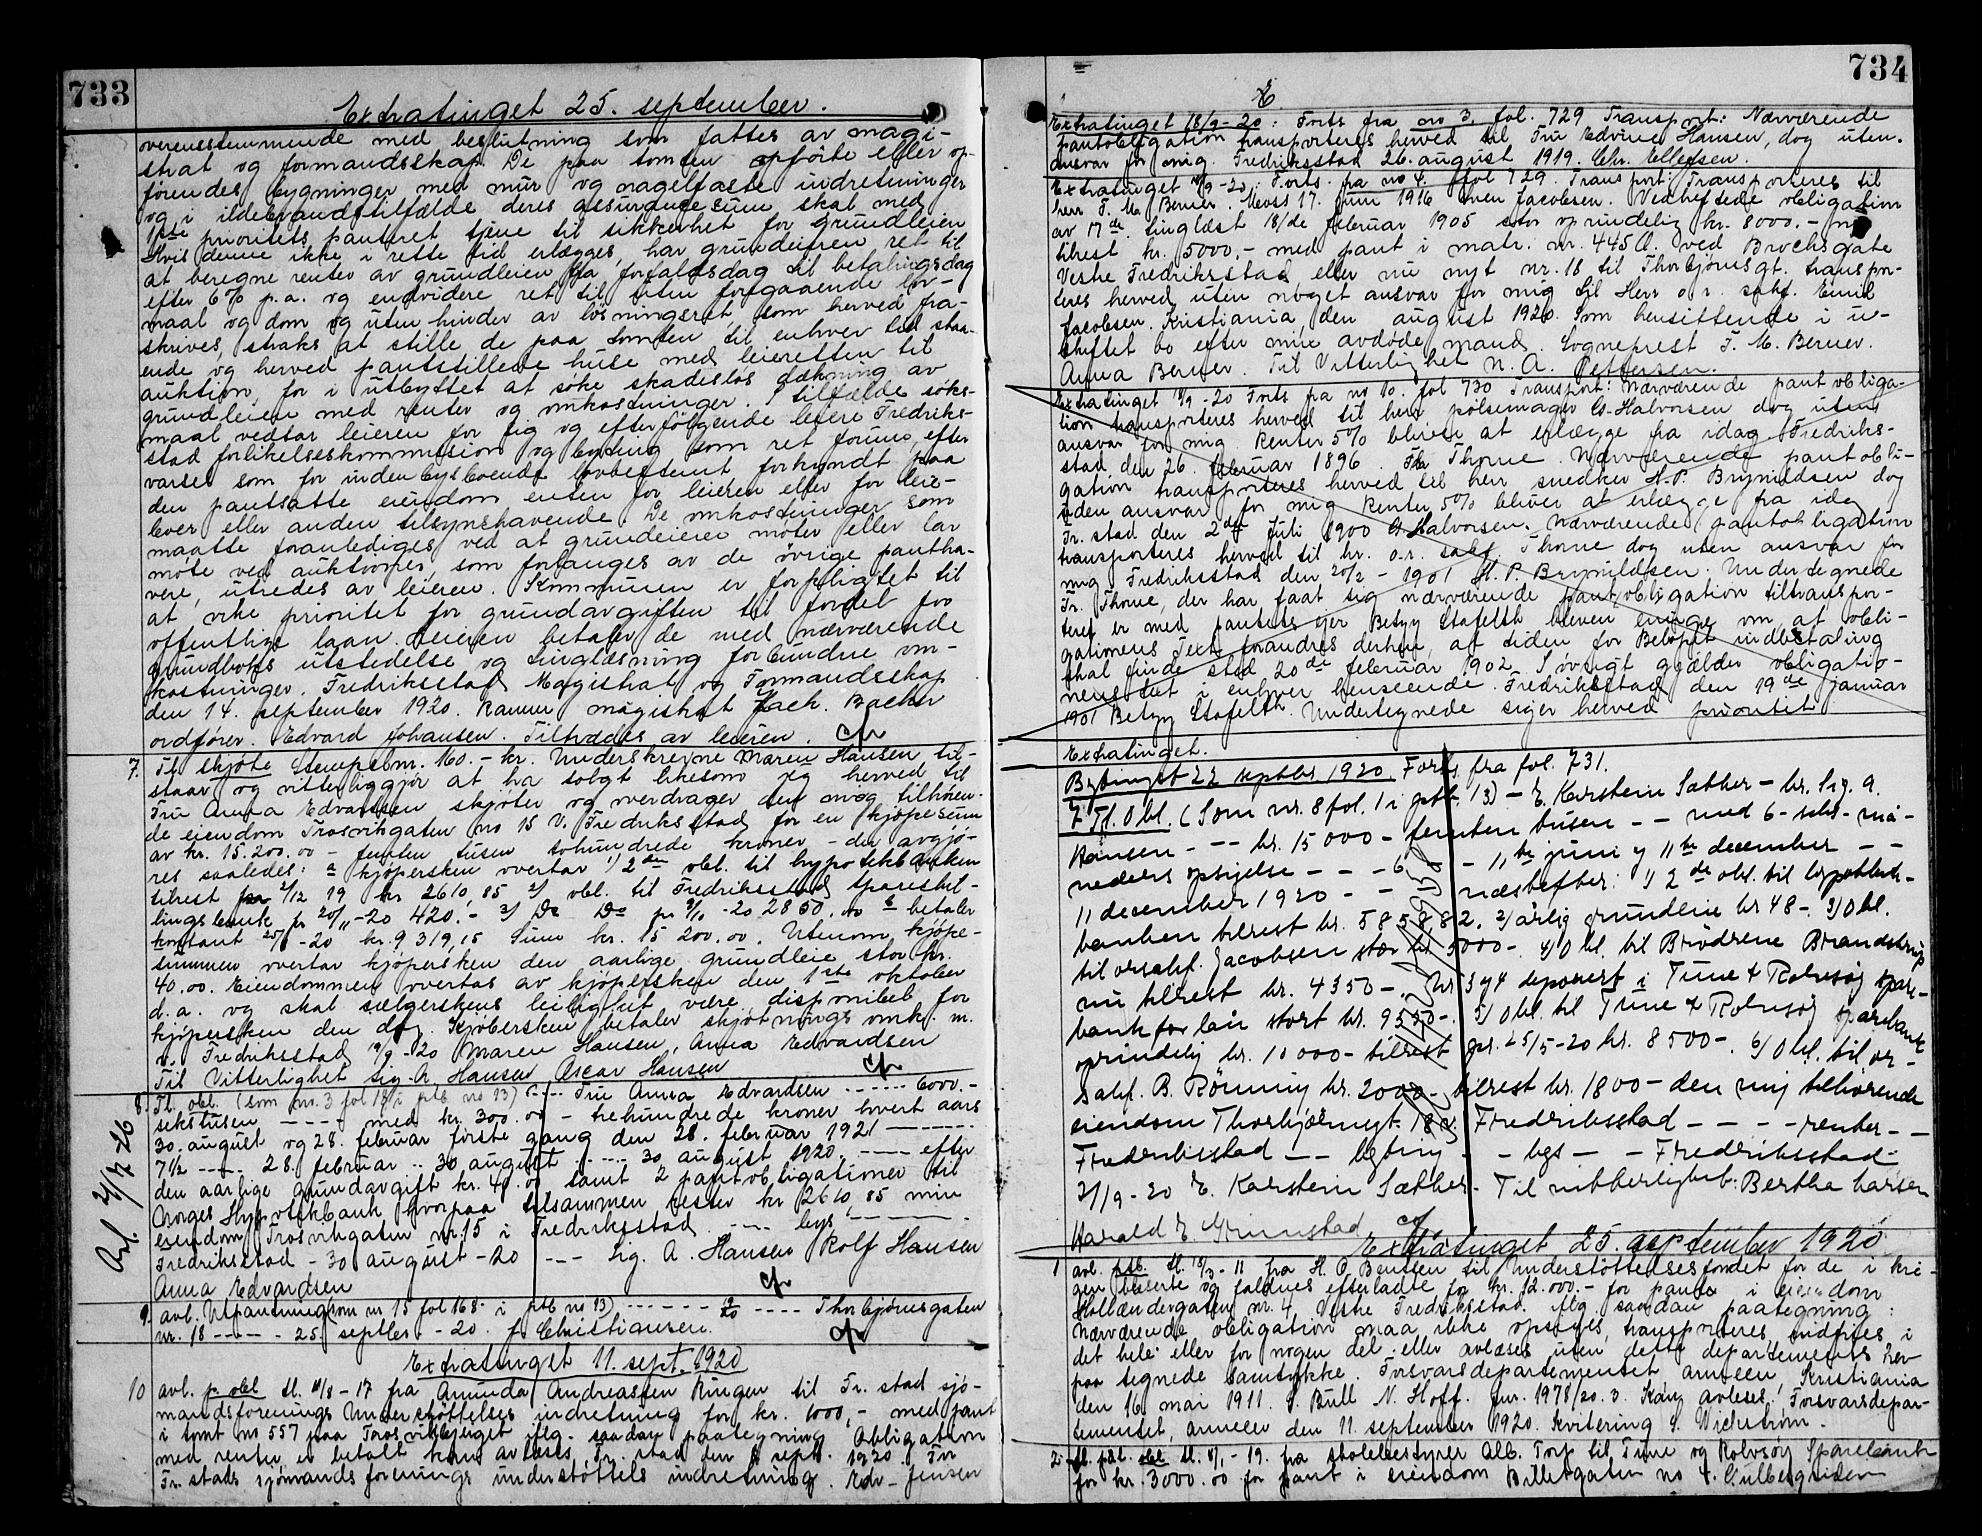 733
Extratinget 25. september.
overensstemmende med beslutning som fattes av magi-
strat og formandsskap. De paa tomten opførte eller op-
førendes bygninger med mur og nagelfaste indretninger
og i ildebrandstilfælde deres assurancesum skal med
1ste prioritets panteret tjene til sikkerhet for grundleien
Hvis denne ikke i rette tid erlægges, har grundeieren ret til
at beregne renter av grundleien fra forfaldsdag til betalingsdag
efter 6% p.a. og endvidere ret til uten foregaaende lov-
maal og dom og uten hinder av løsningsret, som herved fra-
skrives, straks at stille de paa tomten til enhver tid staa-
ende og herved pantstillede huse med leieretten til
auktion, for i utbyttet at søke skadesløs dækning av
grundleien med renter og omkostninger. I tilfælde søks-
maal vedtar leieren for sig og efterfølgende leiere Fredriks-
stad forlikelseskommission og byting som ret forum, efter
varsel som for indenbys boende lovbestemt forkyndt paa
den pantsatte eiendom enten for leieren eller for leie-
boer eller anden tilsynshavende. De omkostninger som
maatte foranlediges ved at grundeieren møter eller lar
møte ved auktioner, som forlanges av de øvrige pantha-
vere, utredes av leieren. Kommunen er forpligtet til
at vike prioritet for grundavgiften til fordel for
offentlige laan. Leieren betaler de med nærværende
grundbrevs utstedelse og tinglæsning forbundne om-
kostninger. Fredriksstad Magistrat og Formandsskap
den 14. september 1920. Ranner magistrat Zach. Backer
ordfører. Edvard Johansen. Tiltrædes av leieren.
7. Tl. skjøte Stempelm. 160.- kr. Underskrevne Maren Hansen til-
staar og vitterliggjør at ha solgt likesom jeg herved til
Fru Anna Edvardsen skjøter og overdrager den mig tilhøren-
de eiendom Trosvikgaten no 15 V. Fredriksstad for en kjøpesum
av kr. 15.200.00 - femten tusen tohundrede kroner - der avgjø-
res saaledes: a kjøpersken overtar 1/ 2den obl. til hypotekbanken
tilrest pr 2/12 19 kr 2610,85 2/ obl. til Fredriksstad Sparebil-
lingsbank pr 20/11-20 420.- 3/ Do Do pr 9/10 -20 2850.00 b betaler
kontant 25/9 -20 kr. 9319,15 Sum kr. 15 200.00. Utenom kjøpe-
summen overtar kjøpersken den aarlige grundleie stor kr.
40.00. Eiendommen overtas av kjøpersken den 1ste oktober
d.a. og skal sælgerskens leilighet være disponibel for
kjøpersken den dag. Kjøbersken betaler skjøtnings omk. m.
v. Fredriksstad 19/9-20 Maren Hansen, Anna Edvardsen
Til Vitterlighet Sig. A. Hansen Oscar Hansen
8. Tl. obl. (som nr. 3 fol 17 i ptb no 13) ---- Fru Anna Edvardsen ------ 6000.-
sekstusen ---- med kr. 300.00 - trehundrede kroner hvert aars
30. august og 28. februar første gang den 28. februar 1921 ------
7½ ---- 28. februar -- 30 august ---- 30 august 1920. ---- efter
den aarlige grundavgift kr. 40.00 samt 2 pantobligationer til
Norges Hypotekbank hvorpaa tilsammen rester kr 2610,85 min
eiendom Trosvikgaten nr. 15 i Fredriksstad ---- bys ------
Fredriksstad - 30 august -20 --- Sig. A. Hansen Rolf Hansen
Anna Edvardsen
Avl. 2/7 26
9. avl. Utpantning (som nr 15 fol 168 i ptb no 13) ------ ---- Thorbjørnsgaten
nr. 18 ---- 25 septbr. -20. f. Christiansen.
Extratinget 11. sept. 1920
10 avl. p obl tl. 11/8 - 17 fra Amunda Andreassen Ringen til Fr. stad sjø-
mandsforenings Understøttelses indretning for kr. 1000,- med pant
i tomt no 557 paa Trosvikbjerget iflg. saadan paategning Obligation
med renter er betalt kan avlæses. Fr. stad den 8 sept. 1920 For
Fr. stads sjømandsforenings understøttels indretning. Edv. Jensen
734
Extratinget 18/9-20: Forts fra no 3. fol. 729 Transport: Nærværende
pantobligation transporteres herved til Fru Edvine Hansen, dog uten
ansvar for mig. Fredriksstad 26. august 1919. Chr. Ellefsen.
Extratinget 18/9-20: Forts. fra no 4. fol 729. Transport: Transporteres til
herr T. M. Berner. Moss 17. juni 1916 Iven Jacobsen. Vedheftede obligation
av 17de tinglæst 18/de februar 1905 stor oprindelig kr. 8000.- nu
tilrest kr. 5000.- med pant i matr. nr. 445 a. ved Brochsgate
Vestre Fredriksstad eller nu nyt nr. 18 til Thorbjørnsgt. transpor-
teres herved uten noget ansvar for mig til Herr o.r. sakf. Emil
Jacobsen. Kristiania den august 1920. Som hensittende i u-
skiftet bo efter min avdøde mand. Sogneprest T. M. Berner.
Anna Berner. Til Vitterlighet N. A. Pettersen.
Extratinget 18/9-20 Forts fra no 10. fol 730 Transport: Nærværende pantobliga-
tion transporteres herved til herr pølsemager G. Halvorsen dog uten
ansvar for mig Renter 5% bliver at erlægge fra idag Fredriks-
stad den 26. februar 1896. Fr. Thorne. Nærværende pantobli-
gation transporteres herved til herr snedker H. P. Brynildsen dog
uden ansvar for mig Renter 5% bliver at erlægge fra idag
Fr. stad den 2den Juli 1900 G. Halvorsen. Nærværende pantobligation
transporteres herved til hr. o.r. sakf. Thorne dog uten ansvar for
mig Fredriksstad den 20/2 - 1901 H. P. Brynildsen. Undertegnede
Fr. Thorne, der har faat sig nærværende pantobligation transpor-
teret er med pantets ejer Betzy Stofelth bleven enige om at obli-
gationens Text forandres derhen, at tiden for Beløpet indbetaling
skal finde sted 20de februar 1902. I øvrigt gjælder obligatio-
nens Text i enhver henseende. Fredriksstad den 19de januar
1901 Betzy Stofelth. Undertegnede siger herved prioritet
Extratinget.
Bytinget 22 septbr 1920. Forts fra fol. 731.
7 Tl. Obl. (Som nr. 8 fol. 1 i ptb. 13) - E. Karstein Sæther - hr. Sig. A.
Hansen - -- kr. 15000 - femten tusen -- med 6 - seks - må-
neders opsigelse - - - 6 - - 11te juni og 11te december - -
11 december 1920 - - næstefter: 1) 2den obl. til hypotek-
banken tilrest kr. 5858,82. 2) årlig grundleie kr 48 -. 3) Obl.
til orsakf. Jacobsen stor kr 5000 - 4) Obl. til Brødrene Brandstrup
nu tilrest kr. 4350 -. Nr 3 og 4 deponert i Tune & Rolvsøy spare-
bank for lån stort kr. 9500 -. 5) Obl. til Tune & Rolvsøy sparebank
oprindelig kr. 10000 - tilrest pr. 25/5-20 kr. 8500 -. 6) Obl. til or-
sakf. B. Rønning kr. 2000 - tilrest kr. 1800 - den mig tilhørende
eiendom Thorbjørnsgt. 18 a. Fredriksstad - - - - renter - -
Fredriksstad - - byting - - bys - - Fredriksstad
21/9-20 E. Karstein Sæther - Til vitterlighet: Bertha Larsen
Harald E. Grimstad
Extratinget 25. september 1920
1 avl. ptb. tl. 18/3 - 11 fra H. C. Bentsen til Understøttelsesfondet for de i kri-
gen blesserte og faldnes efterladte for kr. 12.000.- for pant i eiendom
Hollændergaten nr. 4 Vestre Fredriksstad iflg. saadan paategning:
Nærværende obligation maa ikke opsiges, transporteres, indfries i
det hele eller for nogen del eller avlæses uten dette departements her
paa tegnede samtykke. Forsvarsdepartementet, armeen, Kristiania
den 16 mai 1911. S. Bull N. Hoff. Jnr. 1978/20. 3. Kan avleses, Forsvarsdepar-
tementet, armeen den 11. september 1920. Kvitering S. Wichstrøm.
2. tl. ptl. obl tl. 8/1 - 19. fra skolebestyrer Alb. Torp til Tune og Rolvsøy Sparebank
for kr. 3000.00 for pant i eiendom Billetgaten no 7. Gulbergsiden